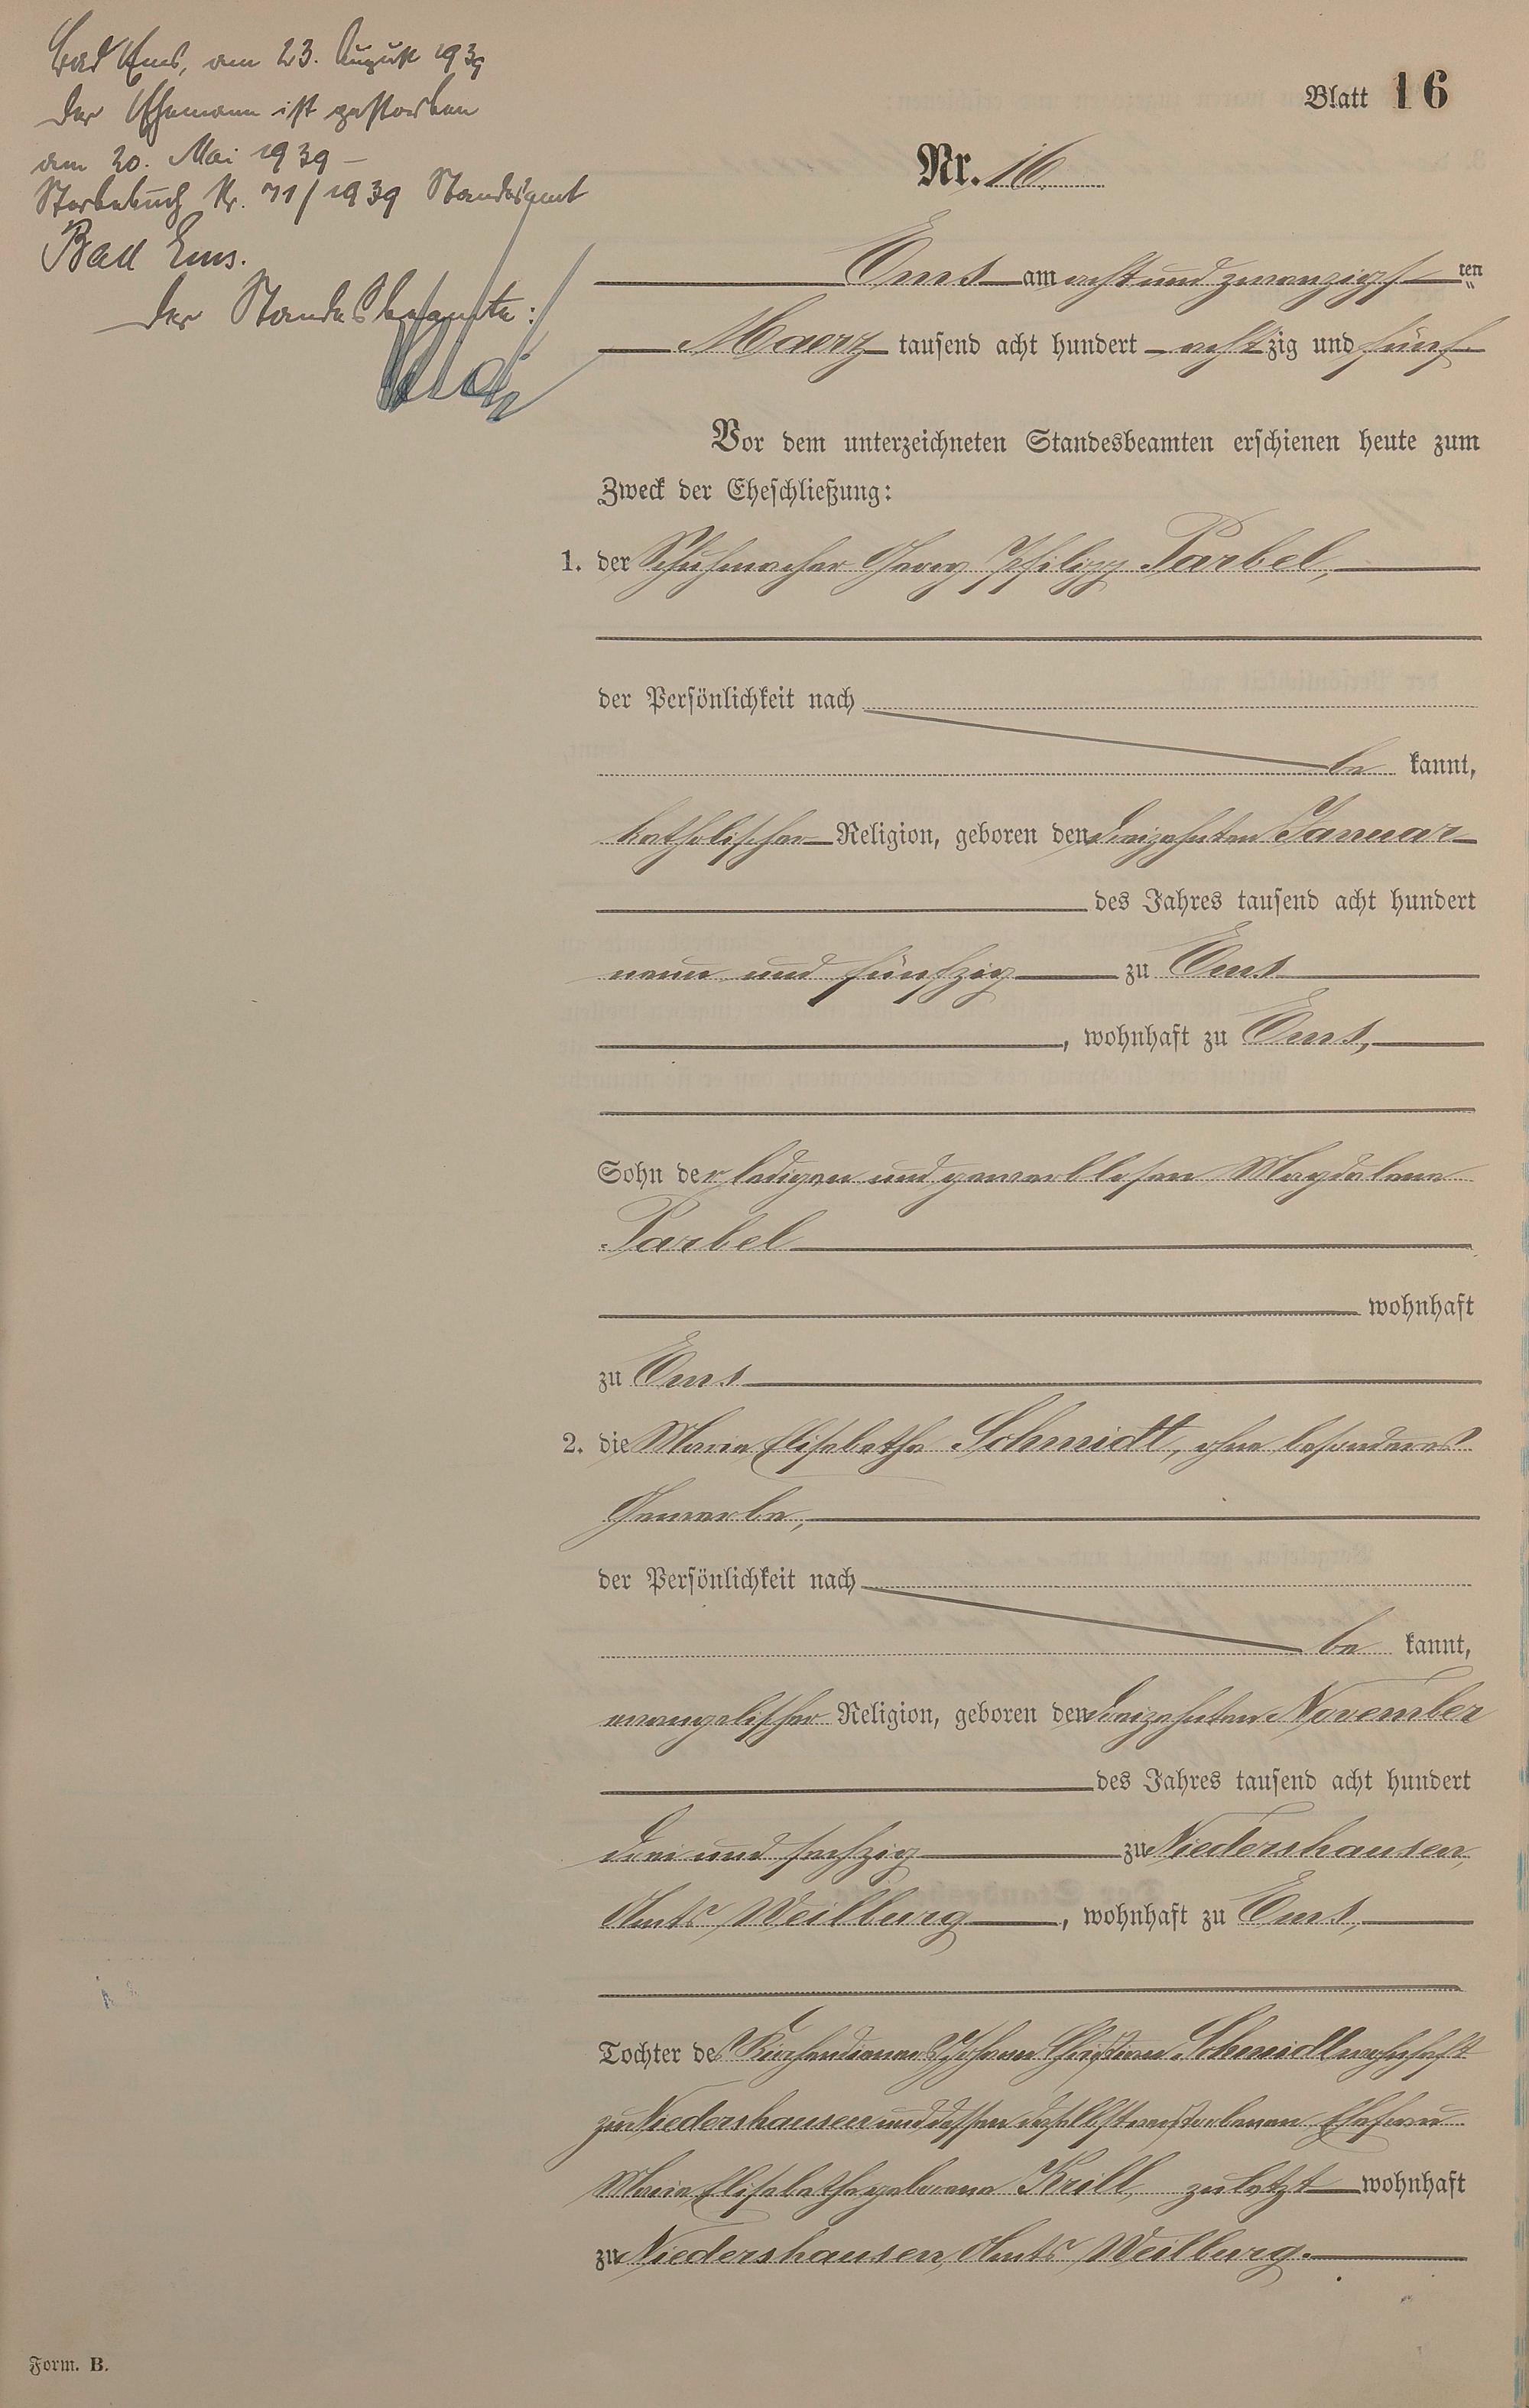 Bad Ems, am 23. August 1939
Der Ehemann ist gestorben
am 20. Mai 1939 –
Sterbebuch Nr. 71/1939 Standesamt
Bad Ems.
Der Standesbeamte:
Blatt 16
Nr. 16.
Ems am acht und zwanzigs ten
Maerz tausend acht hundert achtzig und fünf
Vor dem unterzeichneten Standesbeamten erschienen heute zum
Zweck der Eheschließung:
1. der Schuhmacher Georg Philipp Parbel,
der Persönlichkeit nach
be kannt,
katholischer Religion, geboren den dreizehnten Januar
des Jahres tausend acht hundert
neun und fünfzig zu Ems
, wohnhaft zu Ems,
Sohn der ledigen und gewerblosen Magdalena
Parbel
wohnhaft
zu Ems
2. die Maria Elisabetha Schmidt, ohne besonderes
Gewerbe,
der Persönlichkeit nach
be kannt,
evangelischer Religion, geboren den dreizehnten November
des Jahres tausend acht hundert
drei und sechzig zu Niedershausen,
Amts Weilburg, wohnhaft zu Ems,
Tochter des Kirchendieners Johann Christian Schmidt wohnhaft
zu Niedershausen und dessen daselbst verstorbenen Ehefrau
Maria Elisabetha geborene Krill, zuletzt wohnhaft
zu Niedershausen, Amts Weilburg.
Form. B.